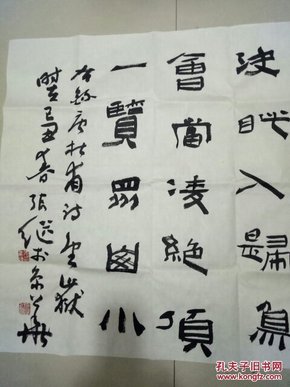 決眥入歸鳥
會當凌絕頂
一覽眾山小
右錄唐杜甫詩望嶽
時己丑春張繼於京華
孔夫子旧书网